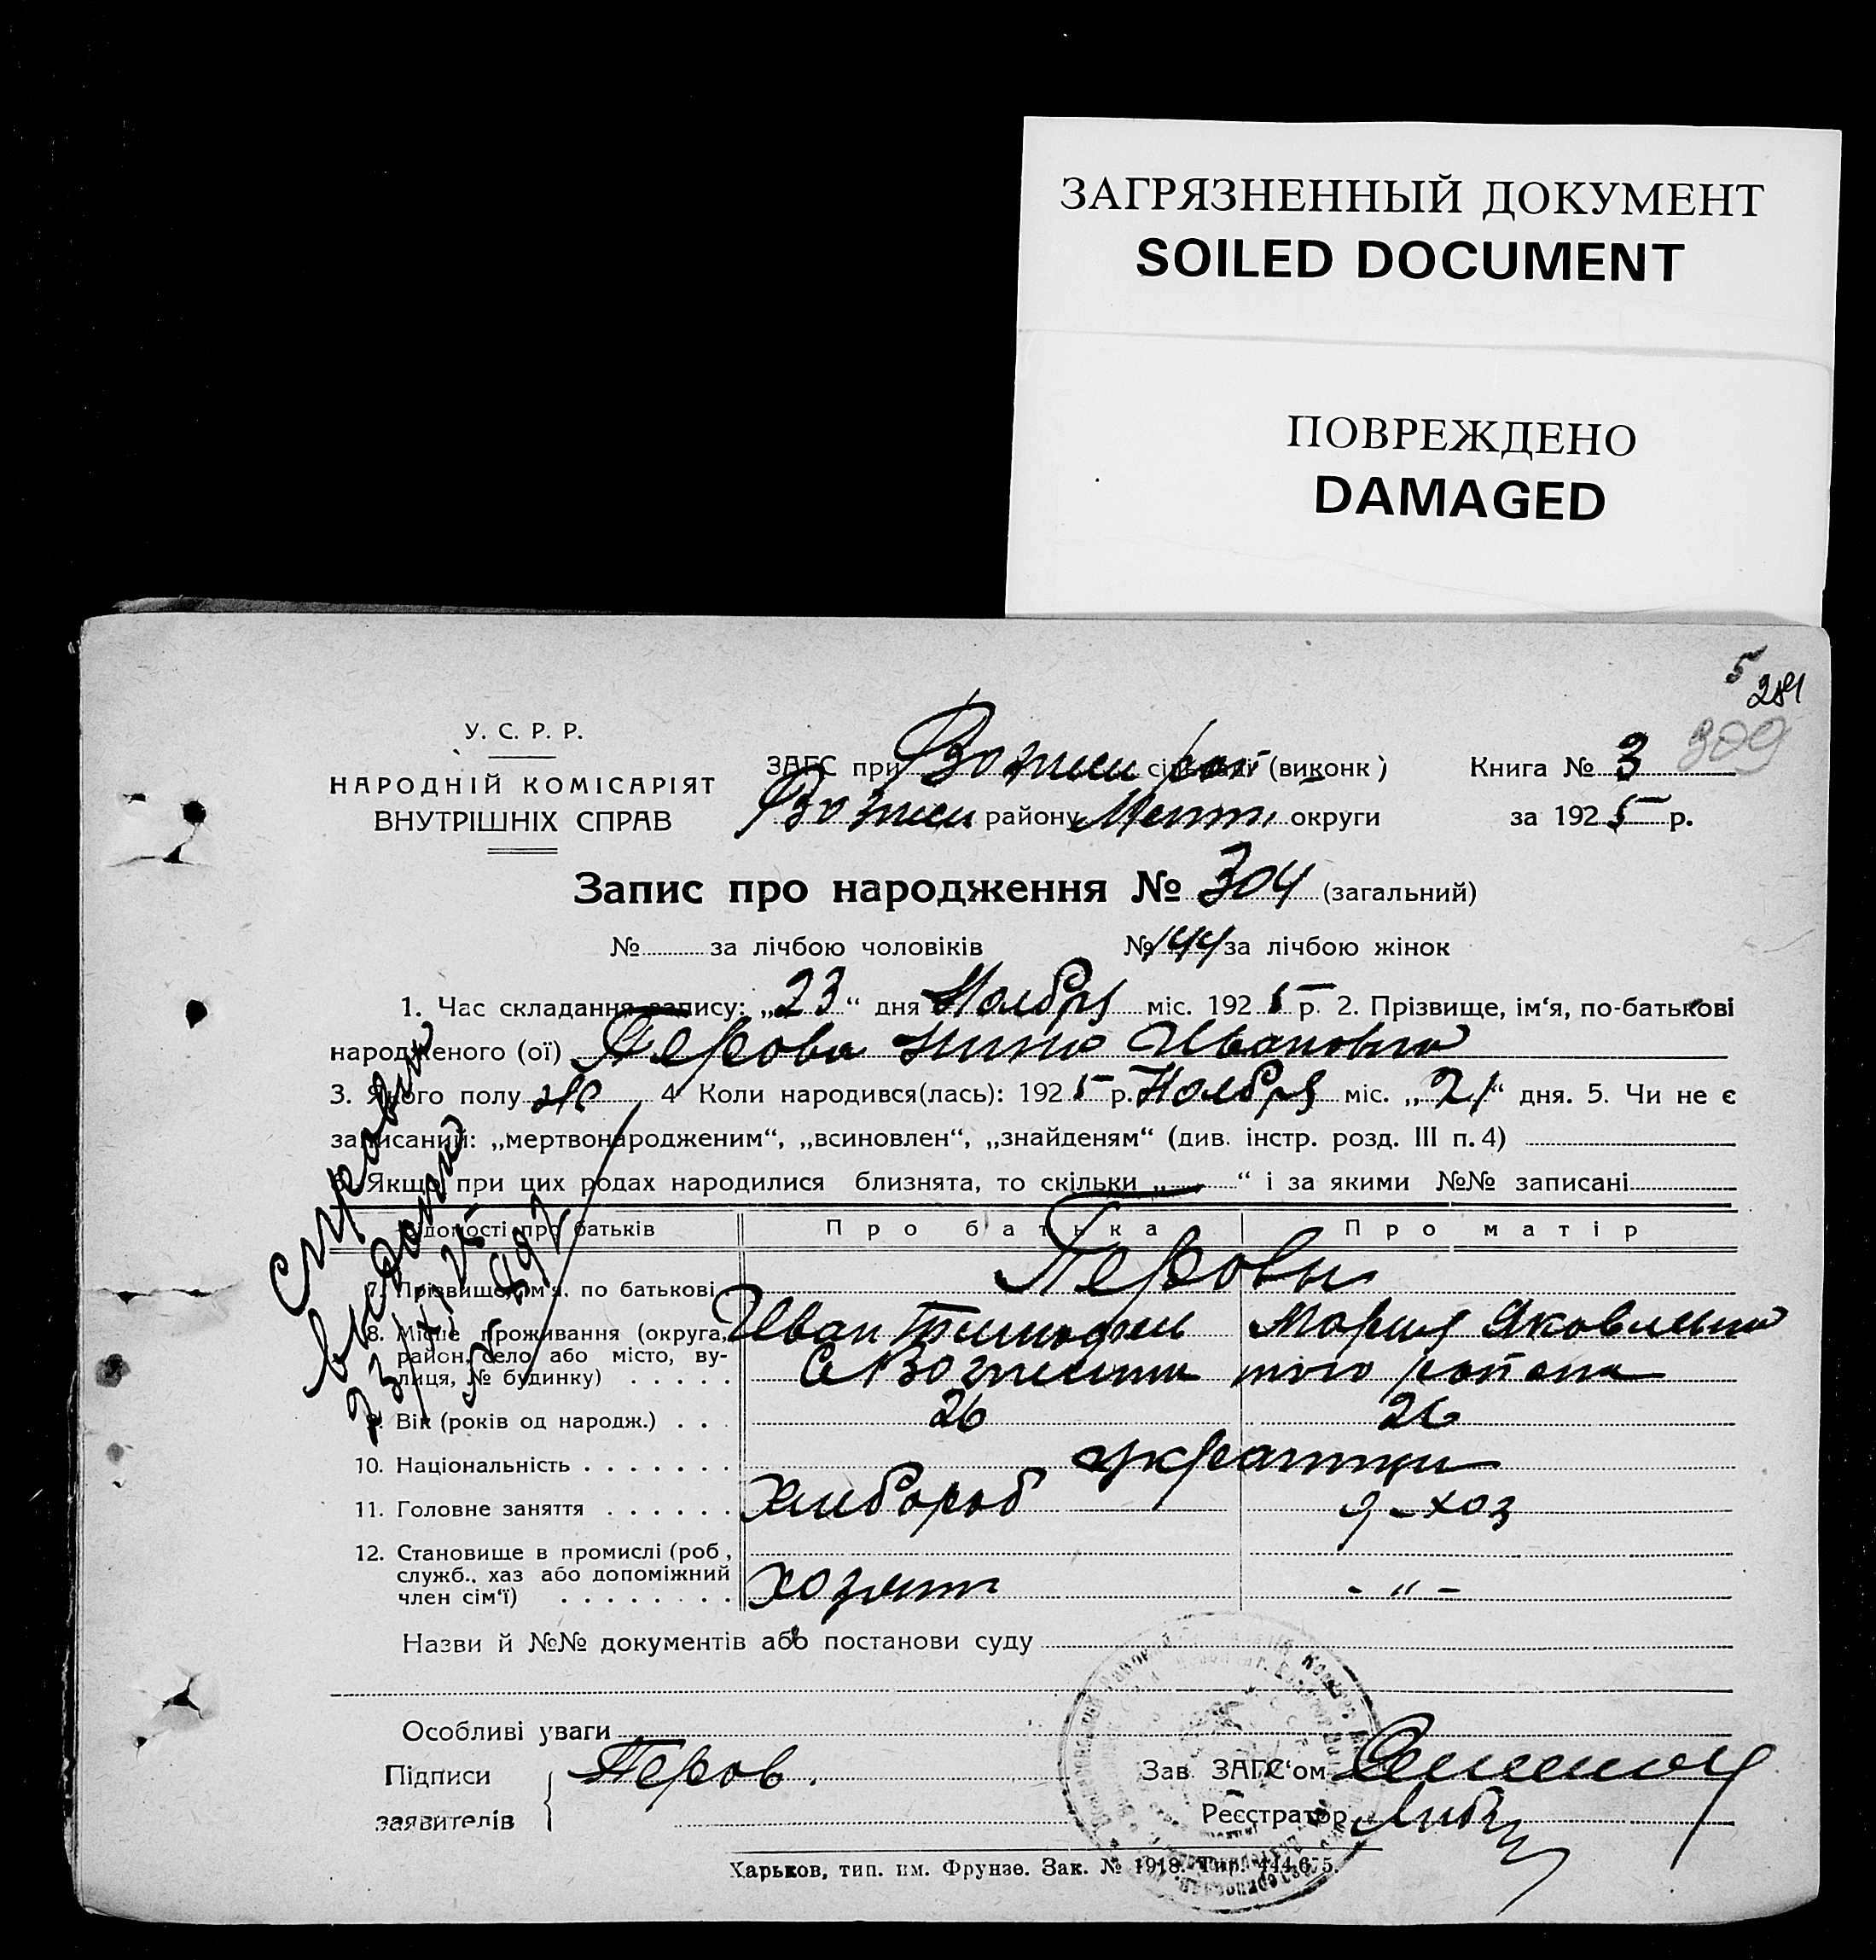 ЗАГРЯЗНЕННЫЙ ДОКУМЕНТ
SOILED DOCUMENT
ПОВРЕЖДЕНО
DAMAGED
5
281
309
У. С. Р. Р.
НАРОДНІЙ КОМІСАРІЯТ
ВНУТРІШНІХ СПРАВ
ЗАГС при сільраді (виконк)
району округи
Книга № 3
за 1925 р.
Запис про народження № 304 (загальний)
№ за лічбою чоловіків № 144 за лічбою жінок
1. Час складання запису: „23“ дня Ноября міс. 1925 р. 2. Прізвище, ім‘я, по-батькові
народженого (ої) Перова Нина Ивановна
3. Якого полу ж 4 Коли народився(лась): 1925 р. Ноября міс. „21“ дня. 5. Чи не є
записаний: „мертвонародженим“, „всиновлен“, „знайденям“ (див. інстр. розд. III п. 4)
6. Якщо при цих родах народилися близнята, то скільки „ “ і за якими №№ записані
Відомості про батьків Про батька Про матір
7. Прізвище, ім‘я, по батькові Перовы
Иван Мария Яковлевна
8. Місце проживання (округа,
район, село або місто, ву-
лиця, № будинку) того района
9. Вік (років од народж.) 26 26
10. Національність украинцы
11. Головне заняття Хлебороб д-хоз
12. Становище в промислі (роб,
служб., хаз або допоміжний
член сім‘ї) хозяин - " -
Назви й №№ документів або постанови суду
Особливі уваги
Підписи
заявителів Перов.
Зав. ЗАГС‘ом
Реєстратор
Харьков, тип. им. Фрунзе. Зак. № 1918. Тир. 444.675.
Справка
выдана